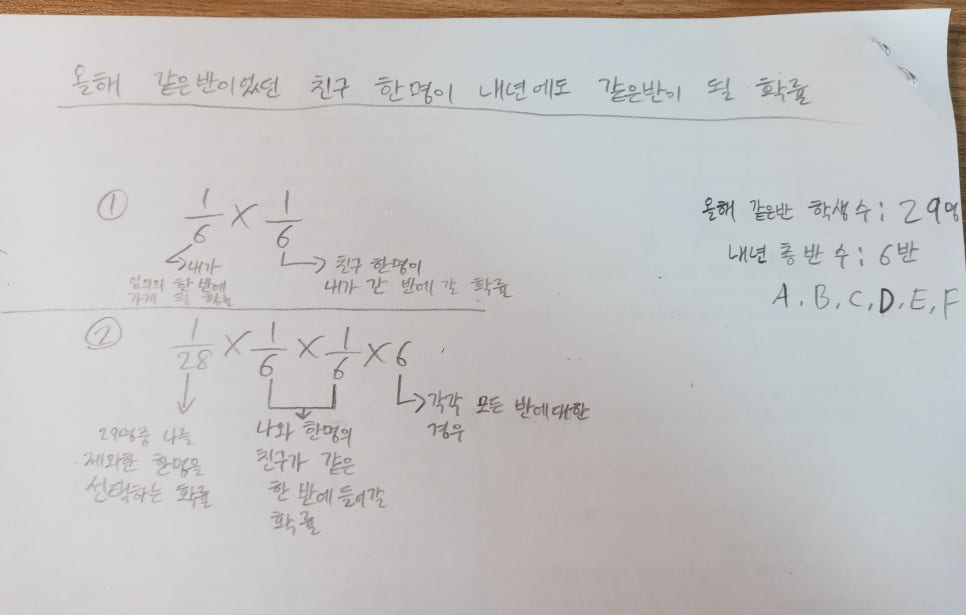 올해 같은반이었던 친구 한명이 내년에도 같은반이 될 확률
올해 같은반 학생수 : 29명
내년 총 반 수 : 6반
A, B, C, D, E, F
① 1/6 × 1/6
→ 내가
임의의 한 반에
가게 될 확률
→ 친구 한명이
내가 간 반에 갈 확률
② 1/28 × 1/6 × 1/6 × 6
29명중 나를
제외한 한명을
선택하는 확률
나와 한명의
친구가 같은
한 반에 들어갈
확률
→ 각각 모든 반에대한
경우